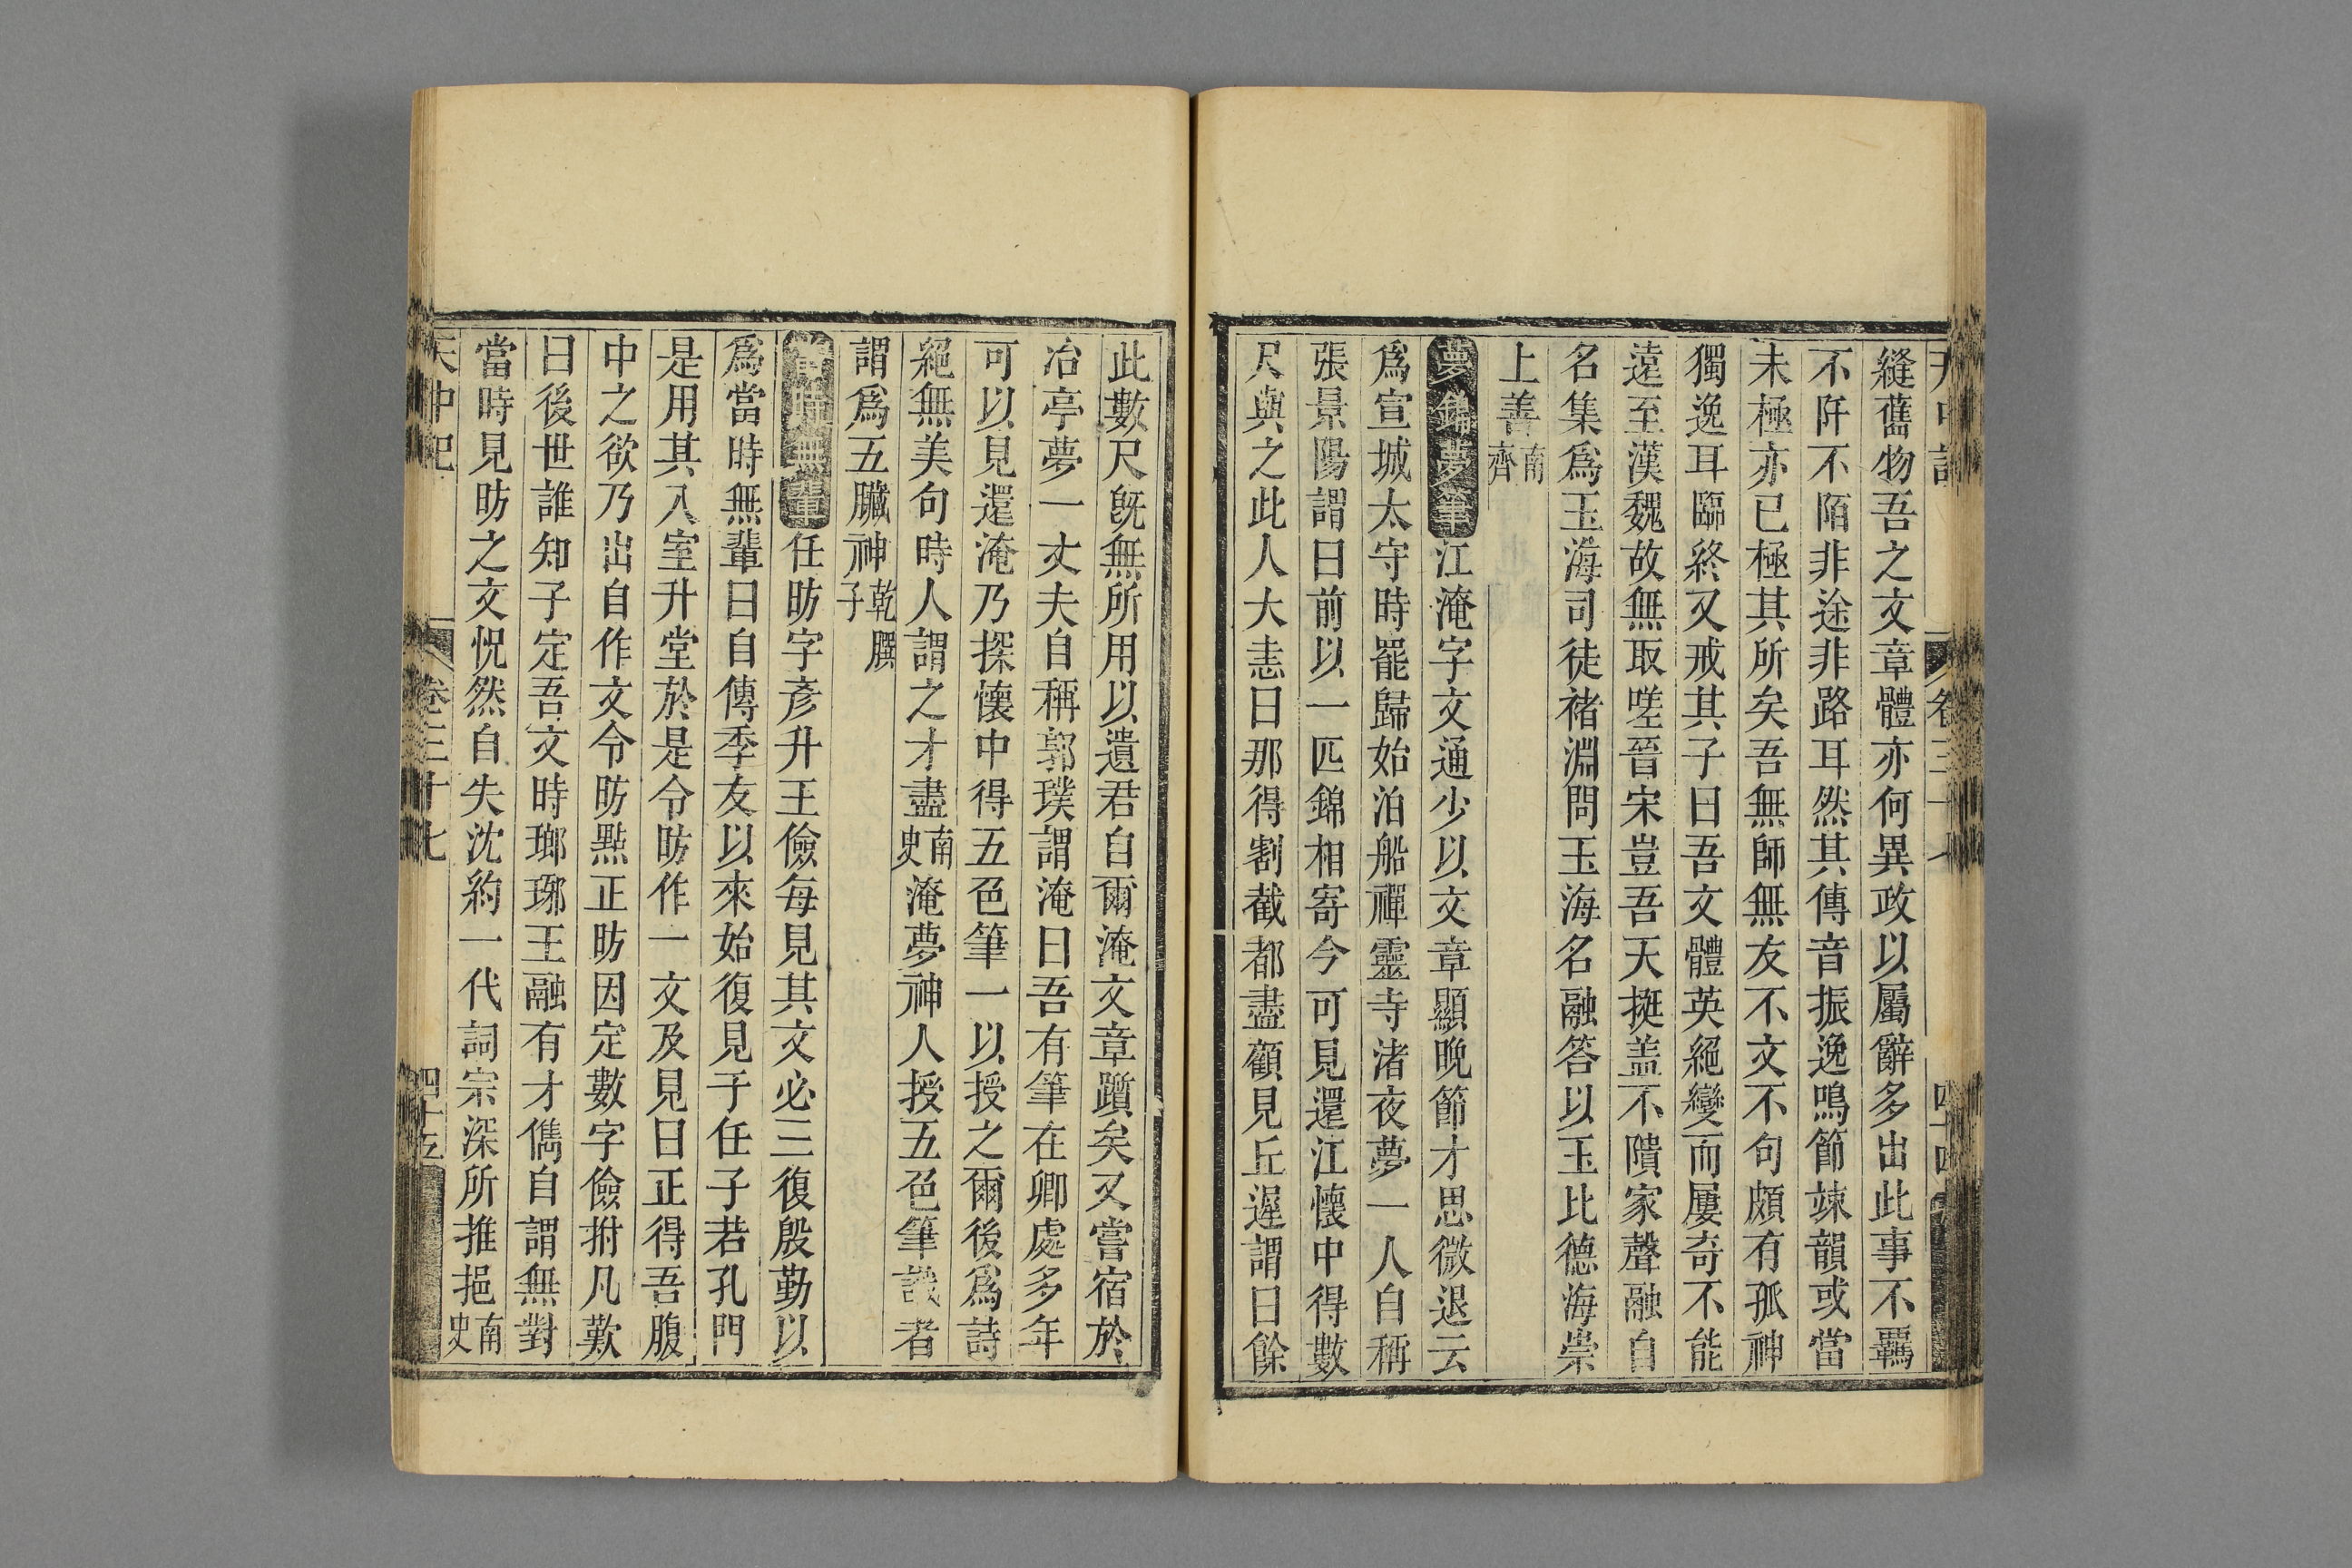 縫舊物吾之文章體亦何異政以屬辭多出此事不羈
不阡不陌非途非路耳然其傳音振逸鳴節竦韻或當
未極亦已極其所矣吾無師無友不文不句頗有孤神
獨逸耳臨終又戒其子曰吾文體英絕變而屢奇不能
遠至漢魏故無取嗟晉宋豈吾天挺盖不隤家聲融自
名集爲玉海司徒褚淵問玉海名融答以玉比德海崇
上善南齊
夢錦夢筆江淹字文通少以文章顯晚節才思微退云
爲宣城太守時罷歸始泊船禪靈寺渚夜夢一人自稱
張景陽謂曰前以一匹錦相寄今可見還江懷中得數
尺與之此人大恚曰那得割截都盡顧見丘遲謂曰餘
此數尺旣無所用以遺君自爾淹文章躓矣又嘗宿於
冶亭夢一丈夫自稱郭璞謂淹曰吾有筆在卿處多年
可以見還淹乃探懷中得五色筆一以授之爾後爲詩
絕無美句時人謂之才盡南史淹夢神人授五色筆識者
謂爲五臟神乾𦠆子
當時無輩任昉字彥升王儉每見其文必三復殷勤以
爲當時無輩曰自傳季友以來始復見于任子若孔門
是用其入室升堂於是令昉作一文及見曰正得吾腹
中之欲乃出自作文令昉點正昉因定數字儉拊几歎
曰後世誰知子定吾文時瑯琊王融有才儁自謂無對
當時見昉之文怳然自失沈約一代詞宗深所推挹南史
天中記 卷三十七 四十五